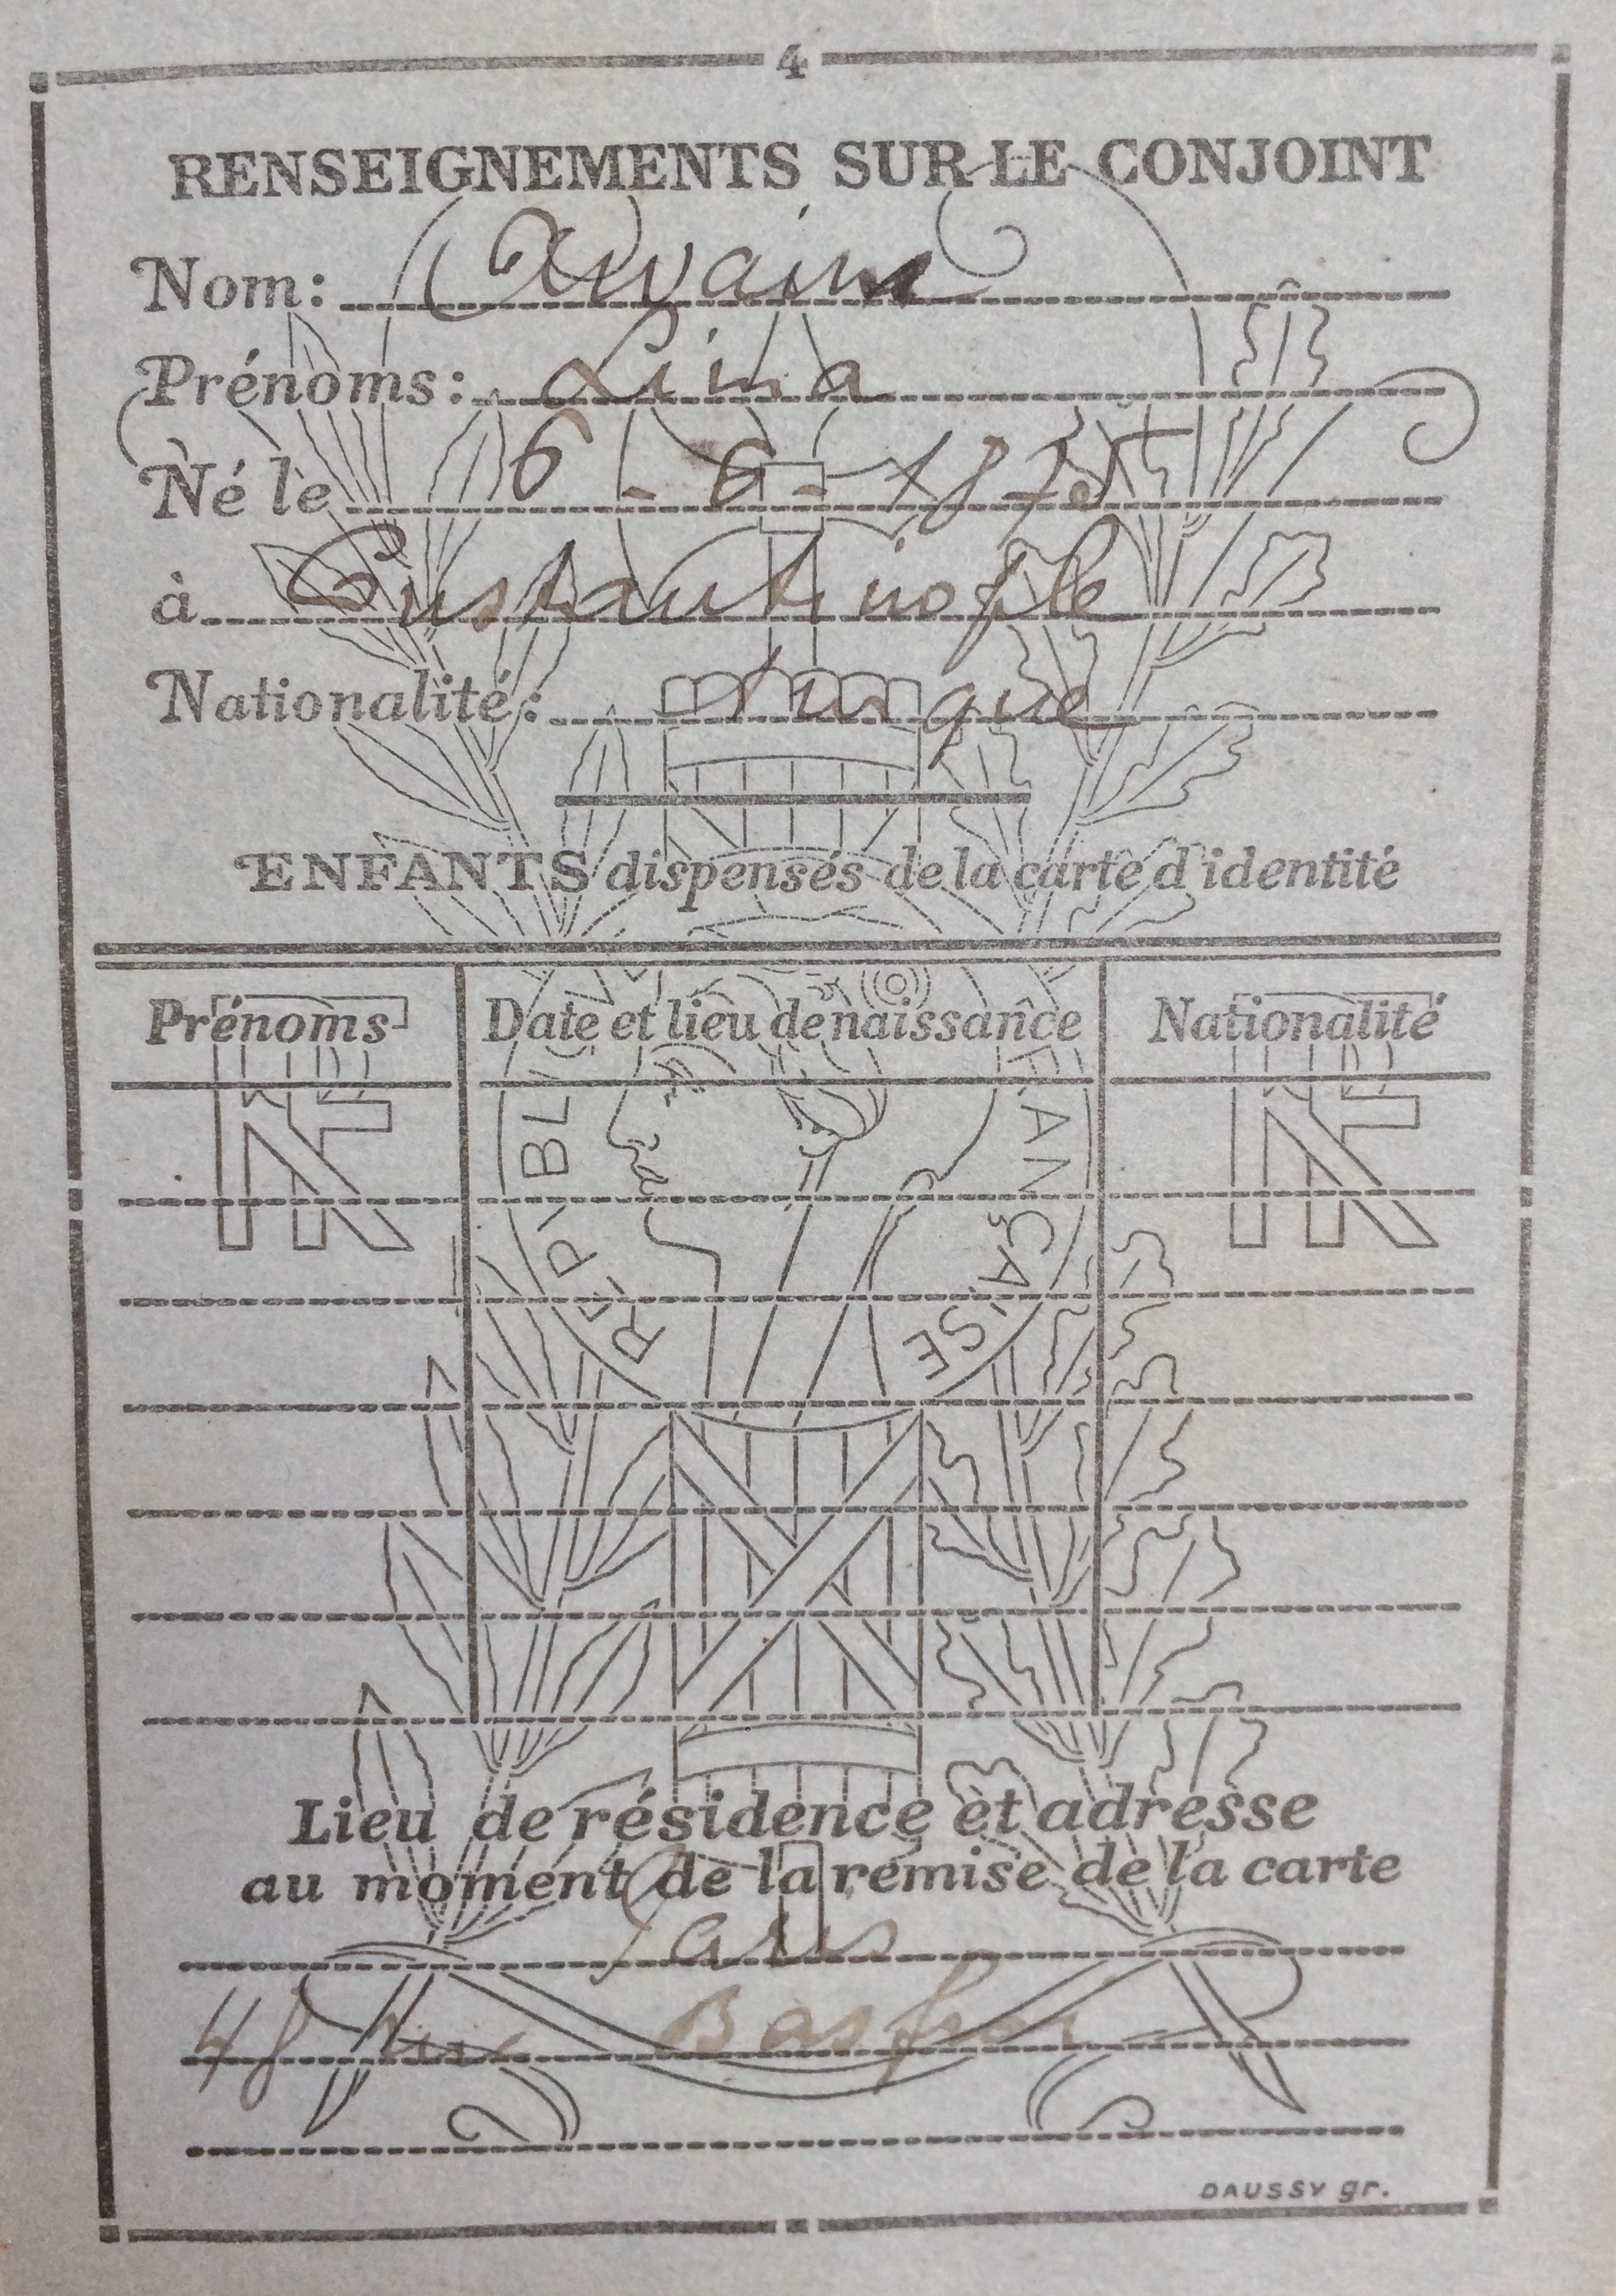 4
RENSEIGNEMENTS SUR LE CONJOINT
Nom:
Prénoms: Lina
Né le 6 - 6 - 1875
à Constantinople
Nationalité: turque
ENFANTS dispensés de la carte d'identité
Prénoms Date et lieu de naissance Nationalité
RF RÉPUBLIQUE FRANÇAISE RF
Lieu de résidence et adresse
au moment de la remise de la carte
Paris
48 rue
DAUSSY gr.